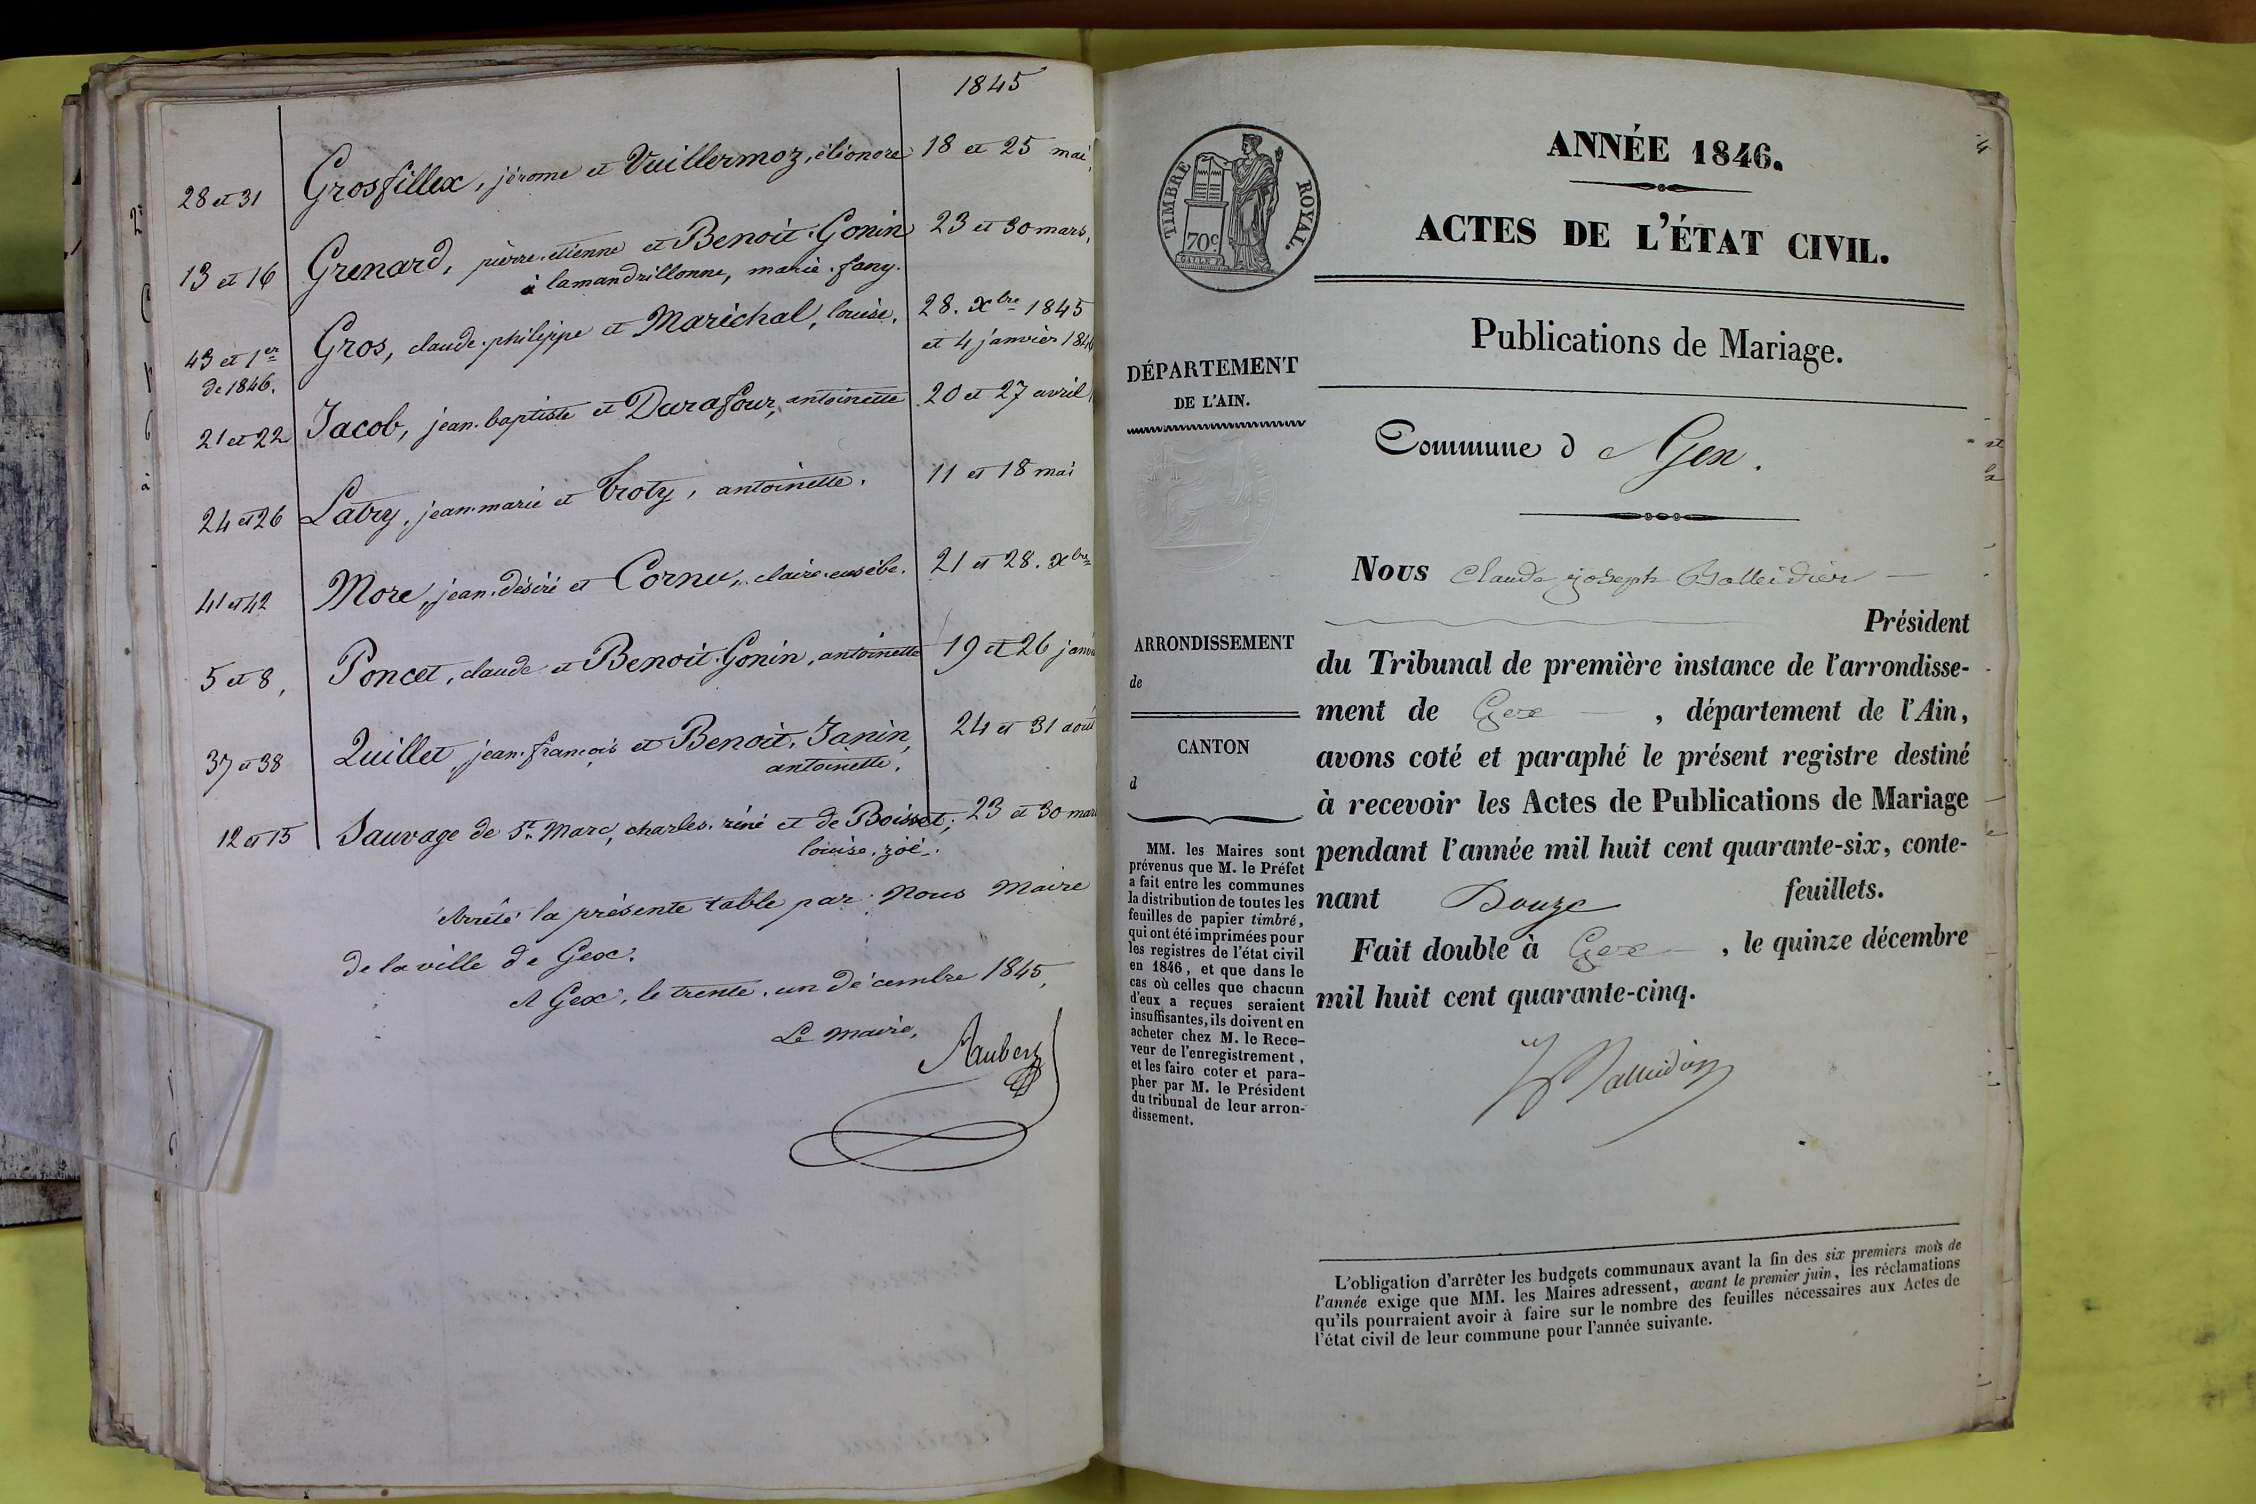 1845
28 et 31 Grosfillex, jérome et Vuillermoz, éléonore 18 et 25 mai,
13 et 16 Grenard, pierre. etienne et Benoit. Gonin 23 et 30 mars,
à lamandrillonne, marie. fany.
43 et 1er Gros, claude. philippe et Maréchal, louise. 28. Xbre 1845
de 1846. et 4 janvier 1846
21 et 22 Jacob, jean. baptiste et Durafour, antoinette 20 et 27 avril
24 et 26 Latry, jean. marie et Croty, antoinette. 11 et 18 mai
41 et 42 More, jean. désiré et Cornu, claire. eusèbe. 21 et 28. Xbre
5 et 8, Poncet, claude et Benoit. Gonin, antoinette 19 et 26 janv
37 et 38 Quillet, jean. françois et Benoit. Janin, 24 et 31 aout
antoinette.
12 et 15 Sauvage de St. Marc, charles. réné et de Boisset; 23 et 30 mars
louise. zoé.
Arrêté la présente table par Nous Maire
de la ville de Gex.
A Gex, le trente. un décembre 1845,
Le Maire,
TIMBRE ROYAL.
70c.
ANNÉE 1846.
ACTES DE L'ÉTAT CIVIL.
Publications de Mariage.
DÉPARTEMENT
DE L'AIN.
Commune d e Gex.
ARRONDISSEMENT
de
CANTON
d
MM. les Maires sont
prévenus que M. le Préfet
a fait entre les communes
la distribution de toutes les
feuilles de papier timbré,
qui ont été imprimées pour
les registres de l'état civil
en 1846, et que dans le
cas où celles que chacun
d'eux a reçues seraient
insuffisantes, ils doivent en
acheter chez M. le Rece-
veur de l'enregistrement,
et les faire coter et para-
pher par M. le Président
du tribunal de leur arron-
dissement.
Nous Claude joseph Balleidier
Président
du Tribunal de première instance de l'arrondisse-
ment de Gex, département de l'Ain,
avons coté et paraphé le présent registre destiné
à recevoir les Actes de Publications de Mariage
pendant l'année mil huit cent quarante-six, conte-
nant Douze feuillets.
Fait double à Gex, le quinze décembre
mil huit cent quarante-cinq.
L'obligation d'arrêter les budgets communaux avant la fin des six premiers mois de
l'année exige que MM. les Maires adressent, avant le premier juin, les réclamations
qu'ils pourraient avoir à faire sur le nombre des feuilles nécessaires aux Actes de
l'état civil de leur commune pour l'année suivante.